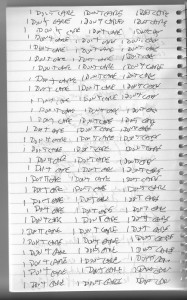 I DON'T CARE I DON'T CARE I DON'T CARE
I DON'T CARE I DON'T CARE I DON'T CARE
I DON'T CARE I DON'T CARE I DON'T CARE
I DON'T CARE I DON'T CARE I DON'T CARE
I DON'T CARE I DON'T CARE I DON'T CARE
I DON'T CARE I DON'T CARE I DON'T CARE
I DON'T CARE I DON'T CARE I DON'T CARE
I DON'T CARE I DON'T CARE I DON'T CARE
I DON'T CARE I DON'T CARE I DON'T CARE
I DON'T CARE I DON'T CARE I DON'T CARE
I DON'T CARE I DON'T CARE I DON'T CARE
I DON'T CARE I DON'T CARE I DON'T CARE
I DON'T CARE I DON'T CARE I DON'T CARE
I DON'T CARE I DON'T CARE I DON'T CARE
I DON'T CARE I DON'T CARE I DON'T CARE
I DON'T CARE I DON'T CARE I DON'T CARE
I DON'T CARE I DON'T CARE I DON'T CARE
I DON'T CARE I DON'T CARE I DON'T CARE
I DON'T CARE I DON'T CARE I DON'T CARE
I DON'T CARE I DON'T CARE I DON'T CARE
I DON'T CARE I DON'T CARE I DON'T CARE
I DON'T CARE I DON'T CARE I DON'T CARE
I DON'T CARE I DON'T CARE I DON'T CARE
I DON'T CARE I DON'T CARE I DON'T CARE
I DON'T CARE I DON'T CARE I DON'T CARE
I DON'T CARE I DON'T CARE I DON'T CARE
I DON'T CARE I DON'T CARE I DON'T CARE
I DON'T CARE I DON'T CARE I DON'T CARE